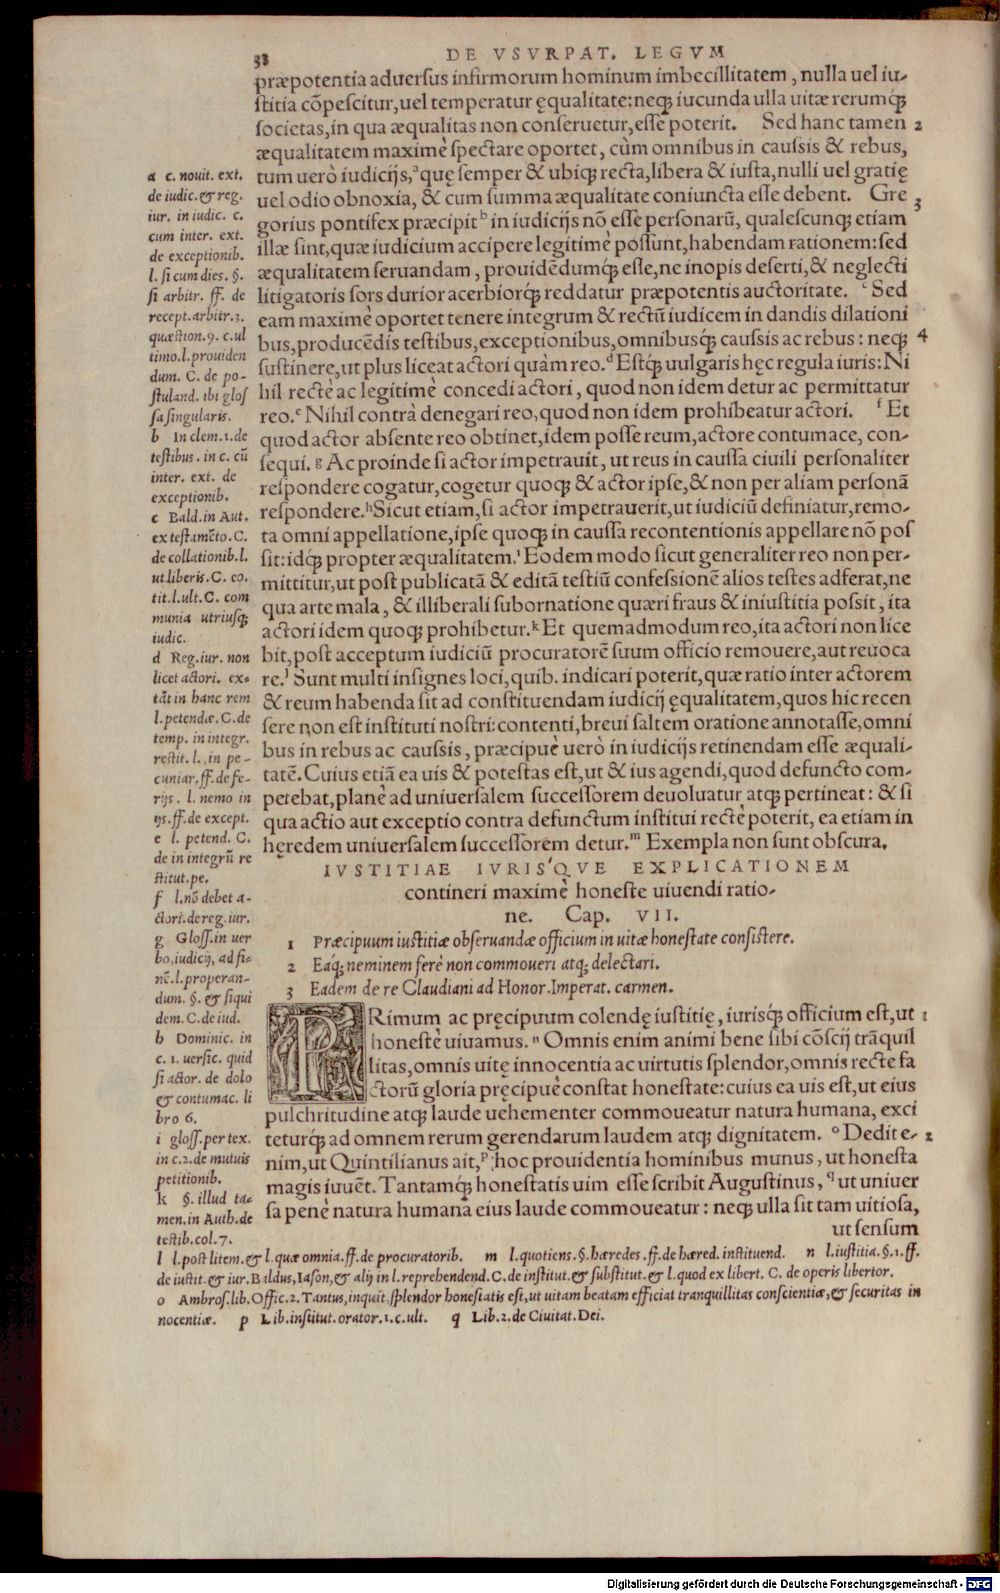 38 DE VSVRPAT. LEGVM
præpotentia aduersus infirmorum hominum imbecillitatem, nulla uel iu-
stitia cõpescitur, uel temperatur ęqualitate: neq; iucunda ulla uitæ rerumq́;
societas, in qua æqualitas non conseruetur, esse poterit. Sed hanc tamen 2
æqualitatem maximè spectare oportet, cùm omnibus in caussis & rebus,
tum uerò iudicijs, ᵃ quę semper & ubiq; recta, libera & iusta, nulli uel gratię
uel odio obnoxia, & cum summa æqualitate coniuncta esse debent. Gre 3
gorius pontifex præcipit ᵇ in iudicijs nõ esse personarũ, qualescunq; etiam
illæ sint, quæ iudicium accipere legitimè possunt, habendam rationem: sed
æqualitatem seruandam, prouidẽdumq́; esse, ne inopis deserti, & neglecti
litigatoris sors durior acerbiorq́; reddatur præpotentis auctoritate. ᶜ Sed
eam maximè oportet tenere integrum & rectũ iudicem in dandis dilationi
bus, producẽdis testibus, exceptionibus, omnibusq́; caussis ac rebus: neq; 4
sustinere, ut plus liceat actori quàm reo. ᵈ Estq́; uulgaris hęc regula iuris: Ni
hil rectè ac legitimè concedi actori, quod non idem detur ac permittatur
reo. ᵉ Nihil contrà denegari reo, quod non idem prohibeatur actori. ᶠ Et
quod actor absente reo obtinet, idem posse reum, actore contumace, con-
sequi. ᵍ Ac proinde si actor impetrauit, ut reus in caussa ciuili personaliter
respondere cogatur, cogetur quoq; & actor ipse, & non per aliam personã
respondere. ʰ Sicut etiam, si actor impetrauerit, ut iudiciũ definiatur, remo-
ta omni appellatione, ipse quoq; in caussa reconuentionis appellare nõ pos
sit: idq́; propter æqualitatem. ⁱ Eodem modo sicut generaliter reo non per-
mittitur, ut post publicatã & editã testiũ confessionẽ alios testes adferat, ne
qua arte mala, & illiberali subornatione quæri fraus & iniustitia possit, ita
actori idem quoq; prohibetur. ᵏ Et quemadmodum reo, ita actori non lice
bit, post acceptum iudiciũ procuratorẽ suum officio remouere, aut reuoca
re. ˡ Sunt multi insignes loci, quib. indicari poterit, quæ ratio inter actorem
& reum habenda sit ad constituendam iudicij ęqualitatem, quos hic recen
sere non est instituti nostri: contenti, breui saltem oratione annotasse, omni
bus in rebus ac caussis, præcipuè uerò in iudicijs retinendam esse æquali-
tatẽ. Cuius etiã ea uis & potestas est, ut & ius agendi, quod defuncto com-
petebat, planè ad uniuersalem successorem deuoluatur atq; pertineat: & si
qua actio aut exceptio contra defunctum institui rectè poterit, ea etiam in
hęredem uniuersalem successorem detur. ᵐ Exempla non sunt obscura.
a c. nouit. ext.
de iudic. & reg.
iur. in iudic. c.
cum inter. ext.
de exceptionib.
l. si cum dies. §.
si arbitr. ff. de
recept. arbitr. 3.
quæstion. 9. c. ul
timo. l. prouiden
dum. C. de po-
stuland. ibi glos
sa singularis.
b In clem. 1. de
testibus. in c. cũ
inter. ext. de
exceptionib.
c Bald. in Aut.
ex testamẽto. C.
de collationib. l.
ut liberis. C. eo.
tit. l. ult. C. com
munia utriusq;
iudic.
d Reg. iur. non
licet actori. ex-
tãt in hanc rem
l. petendæ. C. de
temp. in integr.
restit. l. in pe-
cuniar. ff. de fe-
rijs. l. nemo in
ijs. ff. de except.
e l. petend. C.
de in integrũ re
stitut. pe.
f l. nõ debet a-
ctori. de reg. iur.
g Gloss. in uer
bo, iudicij, ad fi-
nẽ. l. properan-
dum. §. & siqui
dem. C. de iud.
h Dominic. in
c. 1. uersic. quid
si actor. de dolo
& contumac. li
bro 6.
i gloss. per tex.
in c. 2. de mutuis
petitionib.
k §. illud ta-
men. in Auth. de
testib. col. 7.
IVSTITIAE IVRIS'QVE EXPLICATIONEM
contineri maximè honeste uiuendi ratio-
ne. Cap. VII.
1 Præcipuum iustitiæ obseruandæ officium in uitæ honestate consistere.
2 Eaq́; neminem ferè non commoueri atq; delectari.
3 Eadem de re Claudiani ad Honor. Imperat. carmen.
PRimum ac pręcipuum colendę iustitię, iurisq́; officium est, ut 1
honestè uiuamus. ⁿ Omnis enim animi bene sibi cõscij trãquil
litas, omnis uitę innocentia ac uirtutis splendor, omnis recte fa
ctorũ gloria pręcipuè constat honestate: cuius ea uis est, ut eius
pulchritudine atq; laude uehementer commoueatur natura humana, exci
teturq́; ad omnem rerum gerendarum laudem atq; dignitatem. ᵒ Dedit e- 2
nim, ut Quintilianus ait, ᵖ hoc prouidentia hominibus munus, ut honesta
magis iuuẽt. Tantamq́; honestatis uim esse scribit Augustinus, ᑫ ut uniuer
sa penè natura humana eius laude commoueatur: neq; ulla sit tam uitiosa,
ut sensum
l l. post litem. & l. quæ omnia. ff. de procuratorib. m l. quotiens. §. hæredes. ff. de hæred. instituend. n l. iustitia. §. 1. ff.
de iustit. & iur. Baldus, Iason, & alij in l. reprehendend. C. de institut. & substitut. & l. quod ex libert. C. de operis libertor.
o Ambros. lib. Offic. 2. Tantus, inquit, splendor honestatis est, ut uitam beatam efficiat tranquillitas conscientiæ, & securitas in
nocentiæ. p Lib. institut. orator. 1. c. ult. q Lib. 2. de Ciuitat. Dei.
Digitalisierung gefördert durch die Deutsche Forschungsgemeinschaft - DFG